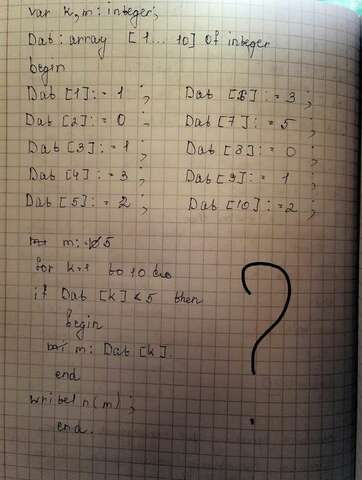 var k, m: integer;
Dat: array [1...10] of integer
begin
Dat [1]: = 1 ; Dat [6]: = 3 ;
Dat [2]: = 0 ; Dat [7]: = 5 ;
Dat [3]: = 1 ; Dat [8]: = 0 ;
Dat [4]: = 3 ; Dat [9]: = 1 ;
Dat [5]: = 2 ; Dat [10]: = 2 ;
m: = 5
for k=1 to 10 do
if Dat [k] < 5 then
begin
m: Dat [k].
end
writeln(m) ;
end.
?